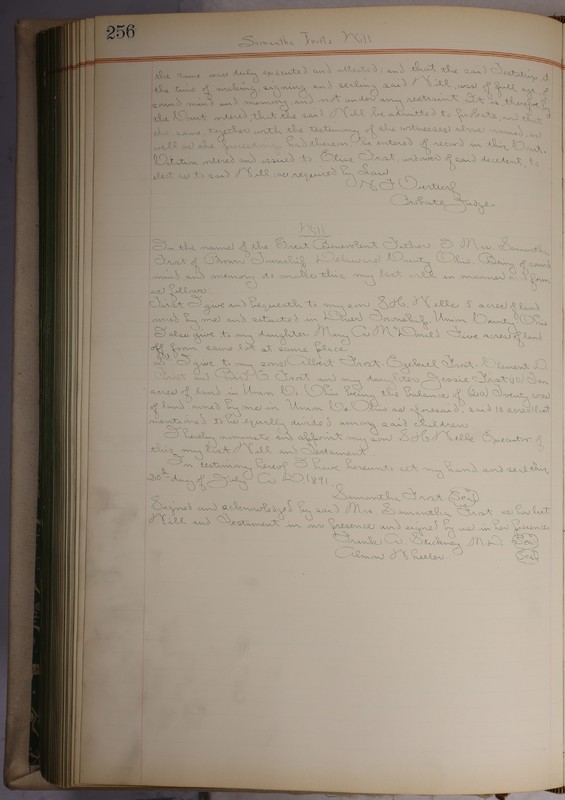 256
Samantha Frost's Will
the same was duly executed and attested; and that the said Testatrix at
the time of making signing and sealing said Will, was of full age, of
sound mind and memory, and not under any restraint. It is therefore by
the Court ordered that the said Will be admitted to probate, and that
the same, together with the testimony of the witnesses above named, as
well as the proceedings had thereon, be entered of record in this Court.
Citation ordered and issued to Frost, widower of said decedent, to
elect as to said Will, as required by Law
Probate Judge.
Will
In the name of the Great Benevolent Father I, Mrs. Samantha
Frost of Brown Township Delaware County Ohio. Being of sound
mind and memory do make this my last will in manner and form
as follows:
First I give and bequeath to my son S. H. Wells 5 acres of land
owned by me and situated in Dover Township, Union County, Ohio
I also give to my daughter Mary A. Five acres of land
off from same lot at same place.
I give to my sons Albert Frost, Ezekiel Frost, Clement D.
Frost and Frost and my daughter Jessie Frost (10) Ten
acres of land in Union Co. Ohio being the balance of (20) Twenty acres
of land owned by me in Union Co. Ohio as aforesaid, said 10 acres last
mentioned to be equally divided among said children.
I hereby nominate and appoint my son S. H. Wells Executor of
this my last Will and Testament.
In testimony hereof I have hereunto set my hand and seal this
20th day of July A. D. 1891.
Samantha Frost (Seal)
Signed and acknowledged by said Mrs. Samantha Frost as her last
Will and Testament in our presence and signed by us in her presence
Frank A. Stickney M.D. (Seal)
Almon Wheeler (Seal)